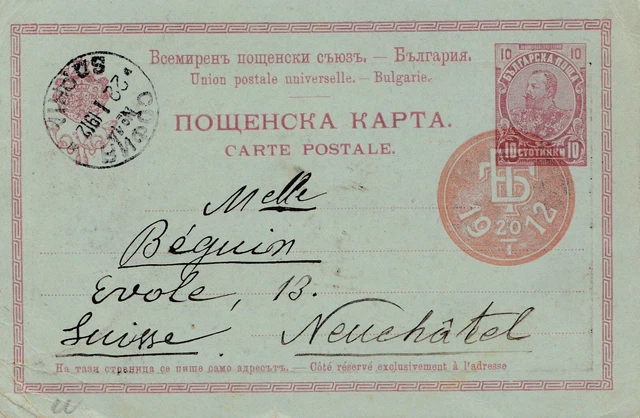 Всемиренъ пощенски съюзъ. — България.
Union postale universelle. — Bulgarie.
ПОЩЕНСКА КАРТА.
CARTE POSTALE.
10 10
БЪЛГАРСКА ПОЩА
10 СТОТИНКИ 10
СОФИЯ
1912
ТБ
19 20 12
I
Melle
Béguin
Evole, 13.
Suisse. Neuchâtel
На тази страница се пише само адресътъ. — Côté réservé exclusivement à l'adresse